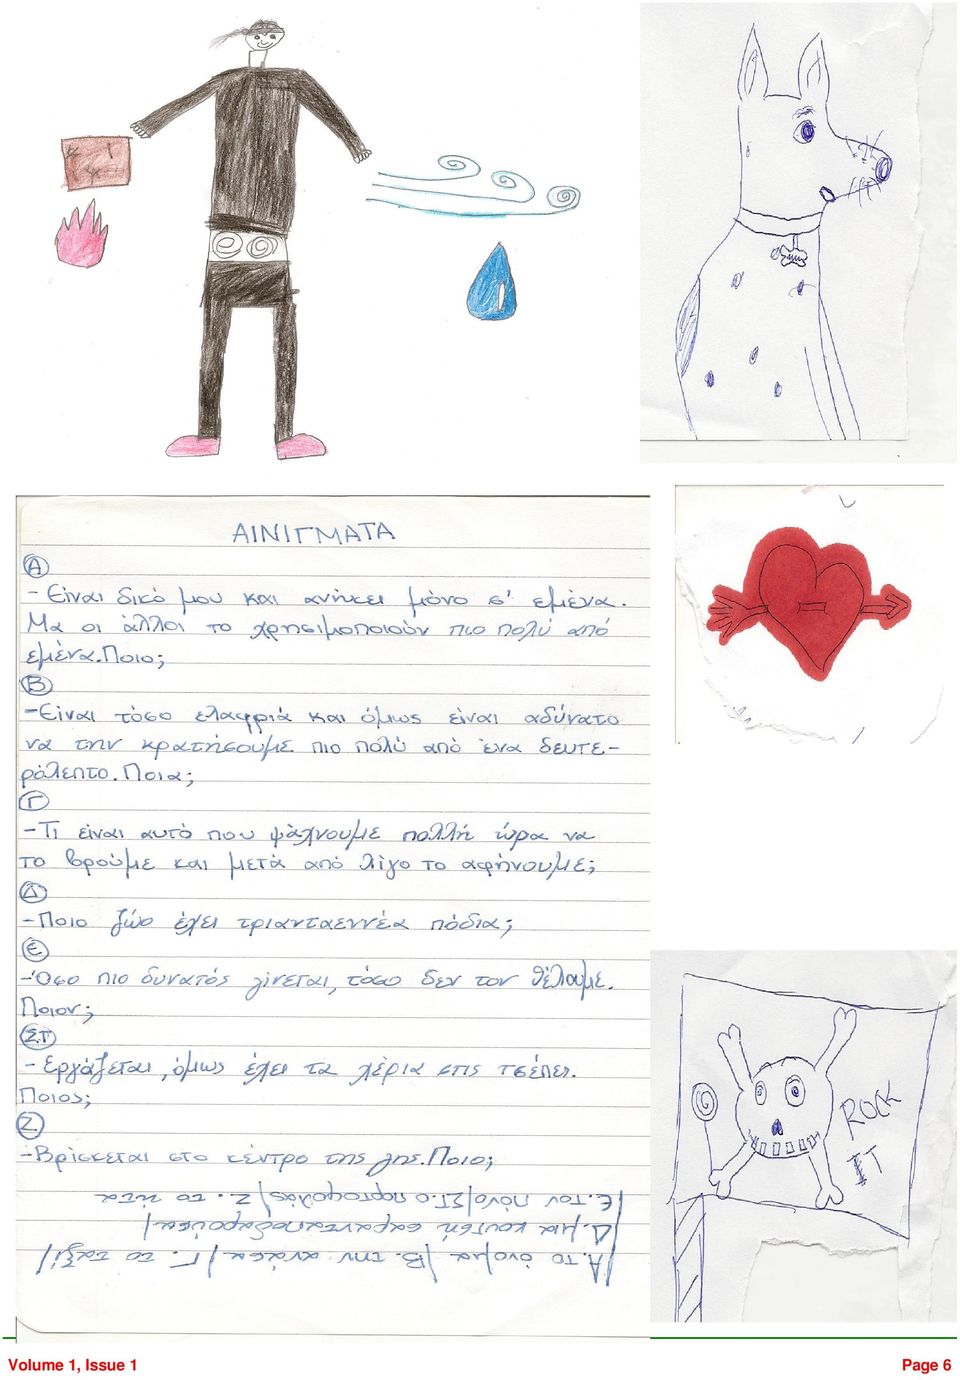 ΑΙΝΙΓΜΑΤΑ
Α
- Είναι δικό μου και ανήκει μόνο σ' εμένα.
Μα οι άλλοι το χρησιμοποιούν πιο πολύ από
εμένα. Ποιο;
Β
- Είναι τόσο ελαφριά και όμως είναι αδύνατο
να την κρατήσουμε πιο πολύ από ένα δευτε-
ρόλεπτο. Ποια;
Γ
- Τι είναι αυτό που ψάχνουμε πολλή ώρα να
το βρούμε και μετά από λίγο το αφήνουμε;
Δ
- Ποιο ζώο έχει τριανταεννέα πόδια;
Ε
- Όσο πιο δυνατός γίνεται, τόσο δεν τον θέλουμε.
Ποιον;
ΣΤ
- Εργάζεται, όμως έχει τα χέρια στις τσέπες.
Ποιος;
Ζ
- Βρίσκεται στο κέντρο της γης. Ποιο;
Α. το όνομα/Β. την ανάσα/Γ. το ταξί/
Δ. μια κουτσή σαρανταποδαρούσα/
Ε. τον πόνο/ΣΤ. ο πορτοφολάς/Ζ. το ήτα
ROCK
IT
Volume 1, Issue 1
Page 6